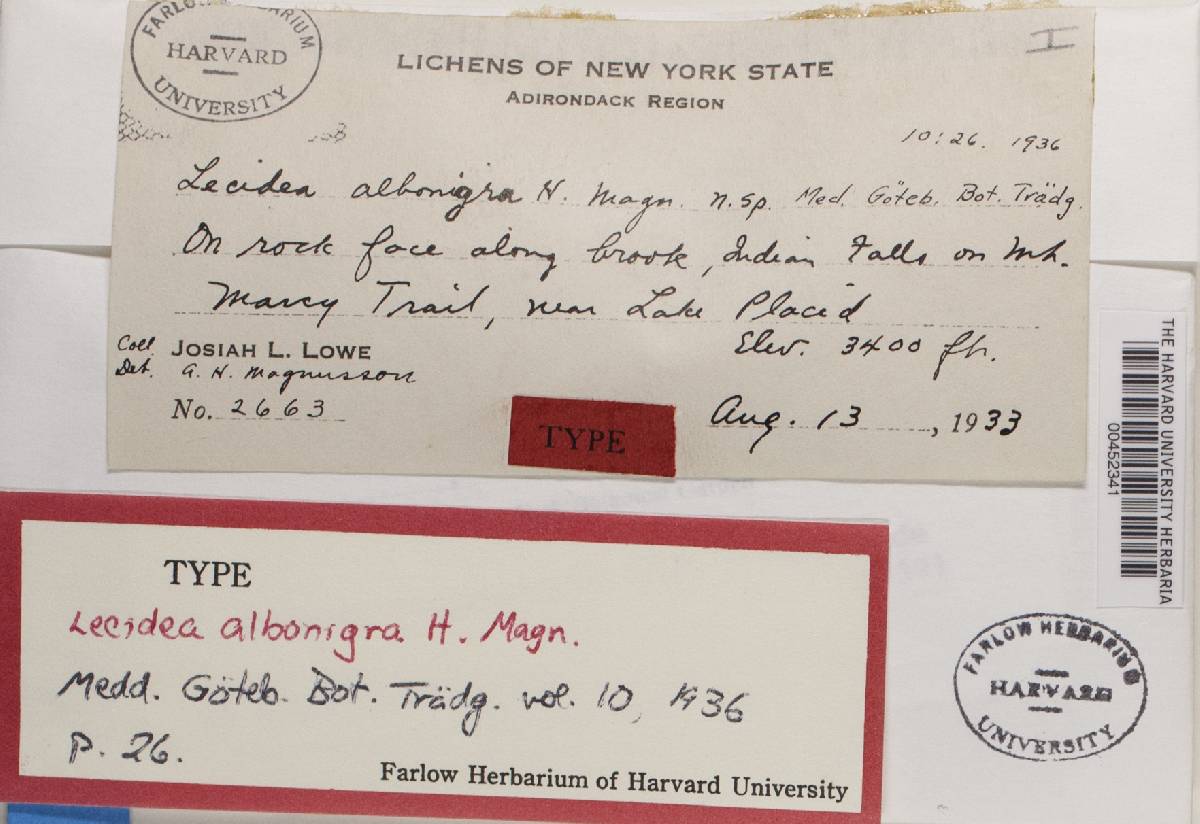 FARLOW HERBARIUM
HARVARD
UNIVERSITY
I
LICHENS OF NEW YORK STATE
ADIRONDACK REGION
10:26. 1936
Lecidea albonigra H. Magn. n.sp. Med. Göteb. Bot. Trädg.
On rock face along brook, Indian Falls on Mt.
Marcy Trail, near Lake Placid
Elev. 3400 ft.
Coll. JOSIAH L. LOWE
Det. A. H. Magnusson
No. 2663
Aug. 13, 1933
TYPE
THE HARVARD UNIVERSITY HERBARIA
00452341
TYPE
Lecidea albonigra H. Magn.
Medd. Göteb. Bot. Trädg. vol. 10, 1936
p. 26.
Farlow Herbarium of Harvard University
FARLOW HERBARIUM
HARVARD
UNIVERSITY